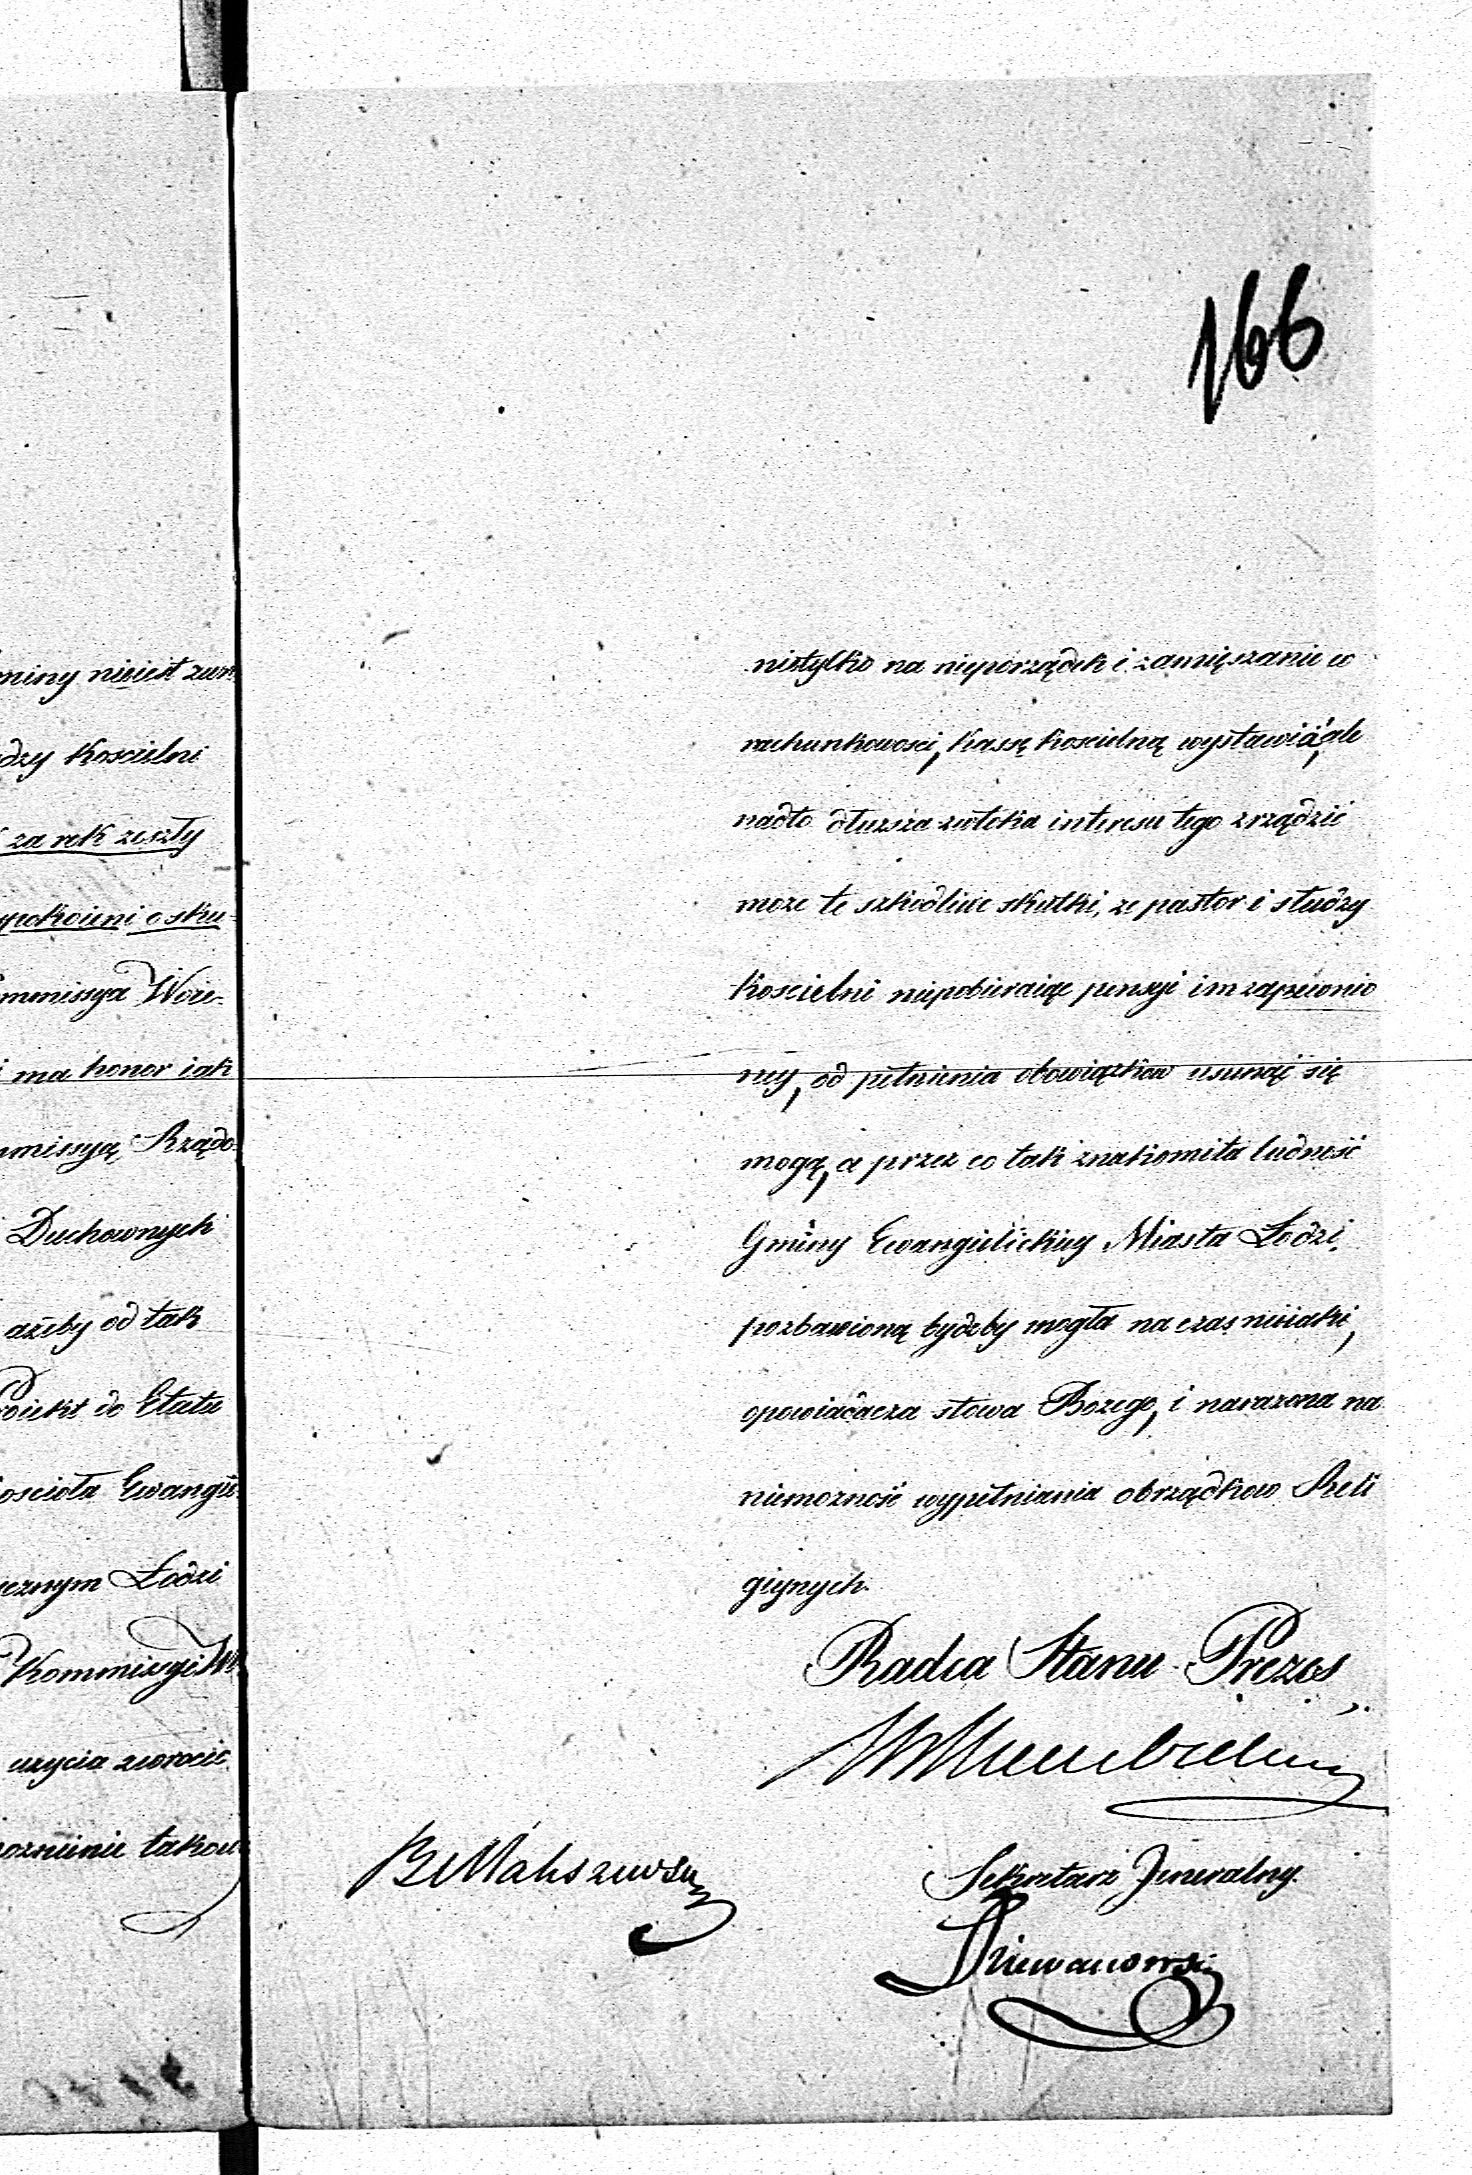 166
miny nieiest zu
dzy Koscielni
za rok zeszły
spokoieni o sku-
ommissya Woie-
i ma honor iak
mmissyą Rządo-
Duchownych
ażeby od tak
Proiekt do Etatu
oscioła Ewangie
cznym Łodzi
Kommissyi W
uzycia zwrocić.
oznienie takow
nietylko na nieporządek i zamięszanie w
rachunkowosci, Kassę koscielną wystawia, ale
nadto dłuzsza zwłoka interesu tego zrządzić
moze te szkodliwe skutki, ze pastor i słudzy
Koscielni niepobieraiąc pensyi im zapewnio
ney, od pełnienia obowiązkow usunąć się
mogą, a przez co tak znakomita ludność
Gminy Ewangielickiey Miasta Łodzi
pozbawioną bydzby mogła na czas nieiaki,
opowiadacza słowa Bozego, i narazona na
niemozność wypełniania obrządkow Reli
giynych.
Radca Stanu Prezes
Sekretarz Jeneralny.